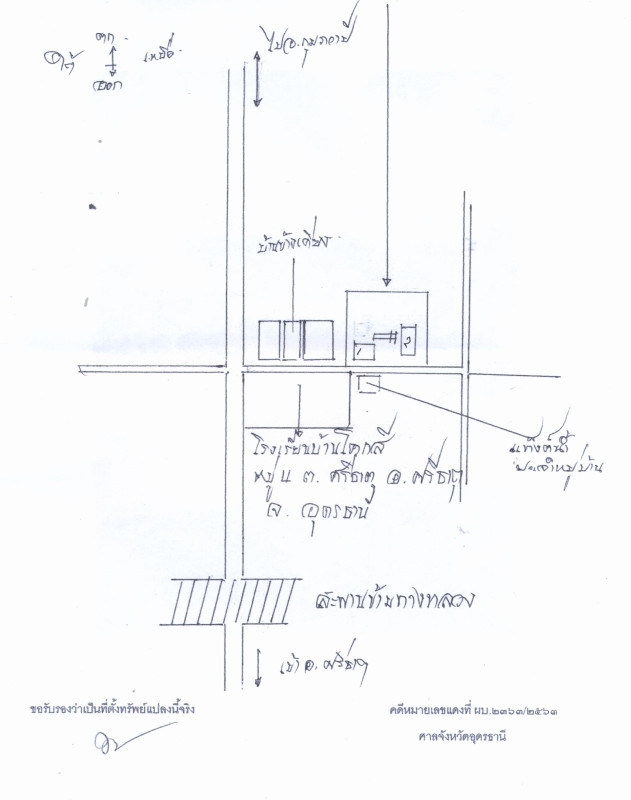 ตก
ใต้
เหนือ
ออก
ไป อ.กุมภวาปี
บ้านข้างเคียง
1
2
โรงเรียนบ้านโคกสี
ต. ศรีธาตุ อ. ศรีธาตุ
จ. อุดรธานี
แท้งค์น้ำ
ประจำหมู่บ้าน
สะพานข้ามทางหลวง
เข้า อ. ศรีธาตุ
ขอรับรองว่าเป็นที่ตั้งทรัพย์แปลงนี้จริง
คดีหมายเลขแดงที่ ผบ.๒๓๖๓/๒๕๖๑
ศาลจังหวัดอุดรธานี